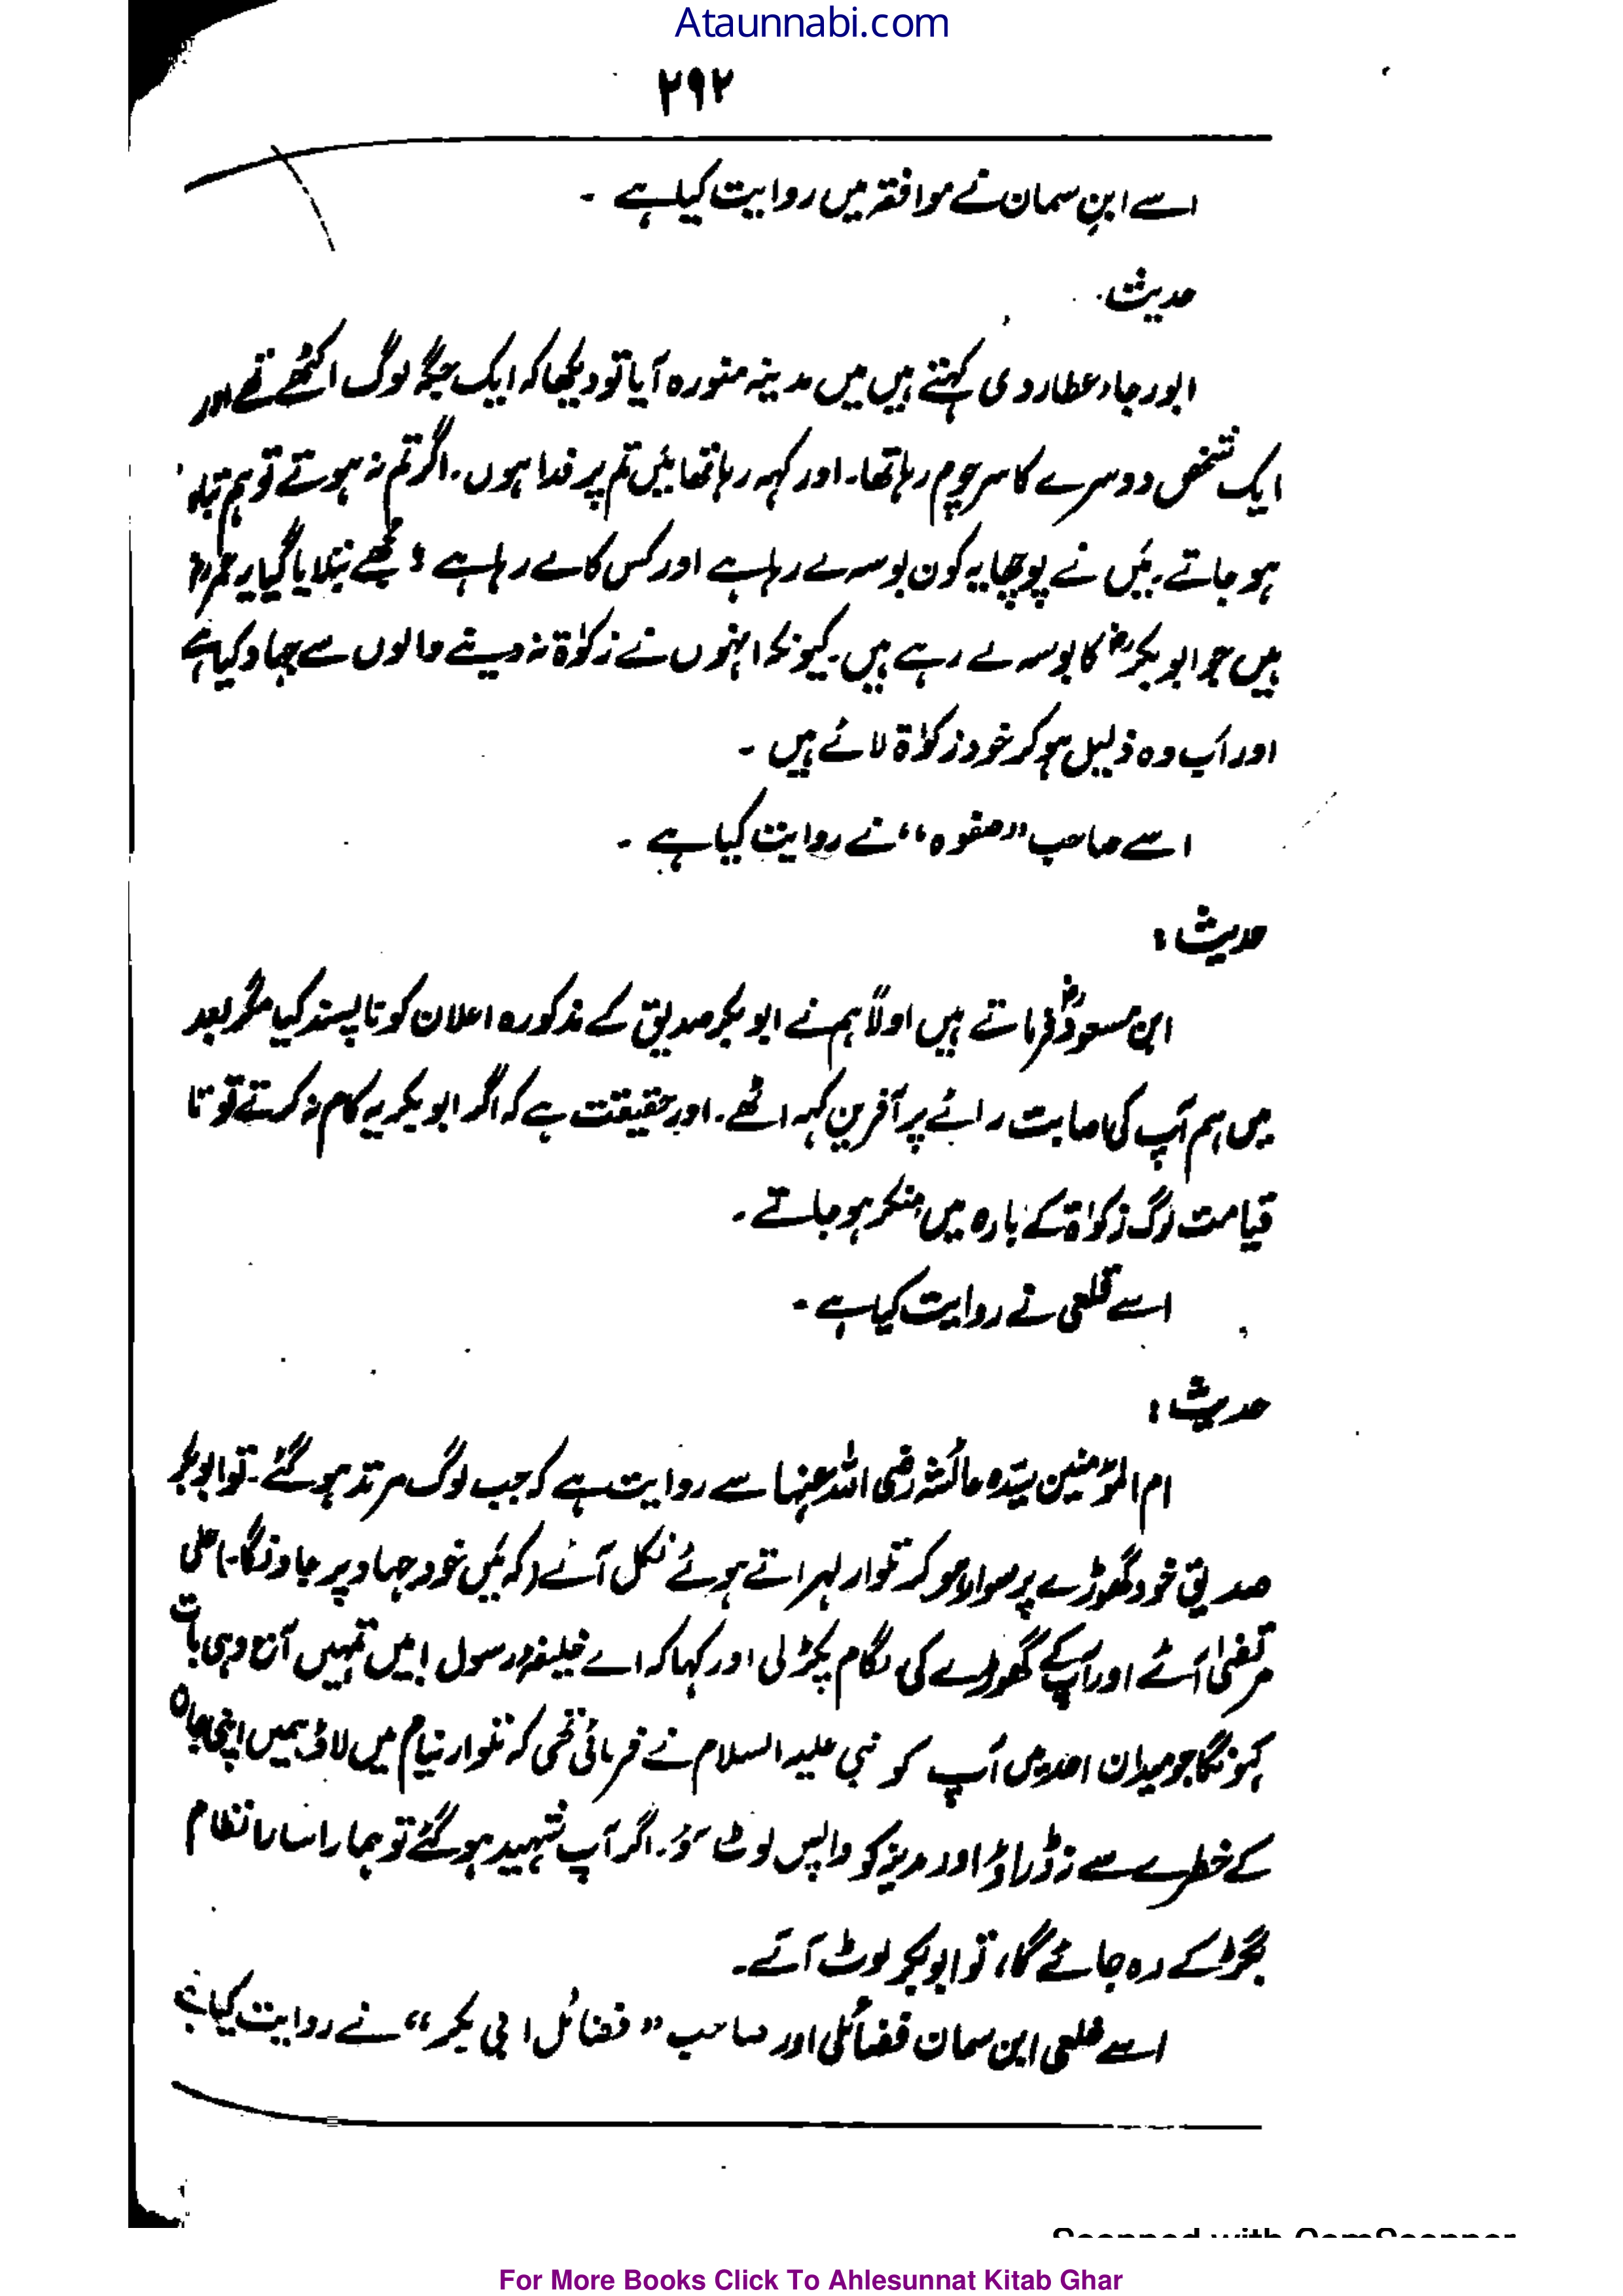 Ataunnabi.com
۲۹۲
اسے ابنِ سمان نے موافقہ میں روایت کیا ہے ۔
حدیث۔
ابورجاء عطاردی کہتے ہیں میں مدینہ منورہ آیا تو دیکھا کہ ایک جگہ لوگ اکٹھے تھے اور
ایک شخص دوسرے کا سر چوم رہا تھا۔ اور کہہ رہا تھا میں تم پر فدا ہوں۔ اگر تم نہ ہوتے تو ہم تباہ
ہو جاتے۔ میں نے پوچھا یہ کون بوسہ لے رہا ہے اور کس کا لے رہا ہے ؟ مجھے بتلایا گیا یہ عمرؓ
ہیں جو ابوبکرؓ کا بوسہ لے رہے ہیں۔ کیونکہ انہوں نے زکوٰۃ نہ دینے والوں سے جہاد کیا ہے
اور اب وہ ذلیل ہو کر خود زکوٰۃ لائے ہیں ۔
اسے صاحب ”صفوہ“ نے روایت کیا ہے ۔
حدیث :
ابن مسعودؓ فرماتے ہیں اولاً ہم نے ابوبکر صدیق کے مذکورہ اعلان کو ناپسند کیا مگر بعد
میں ہم آپ کی اصابت رائے پر آفرین کہہ اٹھے۔ اور حقیقت ہے کہ اگر ابوبکر یہ کام نہ کرتے تو تا
قیامت لوگ زکوٰۃ کے بارہ میں منکر ہو جاتے ۔
اسے قلعی نے روایت کیا ہے ۔
حدیث :
ام المؤمنین سیّدہ عائشہ رضی اللہ عنہا سے روایت ہے کہ جب لوگ مرتد ہو گئے۔ تو ابوبکر
صدیق خود گھوڑے پر سوار ہو کر تلوار لہراتے ہوئے نکل آئے (کہ میں خود جہاد پر جاونگا۔) علی
مرتضیٰ آئے اور آپ کے گھوڑے کی لگام پکڑ لی اور کہا کہ اے خلیفہ رسول! میں تمہیں آج وہی بات
کہونگا جو میدان احد میں آپ کو نبی علیہ السلام نے فرمائی تھی کہ تلوار نیام میں لاؤ ہمیں اپنی جان
کے خطرے سے نہ ڈراؤ اور مدینہ کو واپس لوٹ آؤ۔ اگر آپ شہید ہو گئے تو ہمارا سارا نظام
بگڑ کے رہ جائے گا، تو ابوبکر لوٹ آئے۔
اسے خلعی ابن سمان فضائلی اور صاحب ”فضائل ابی بکر“ نے روایت کیا ہے
For More Books Click To Ahlesunnat Kitab Ghar